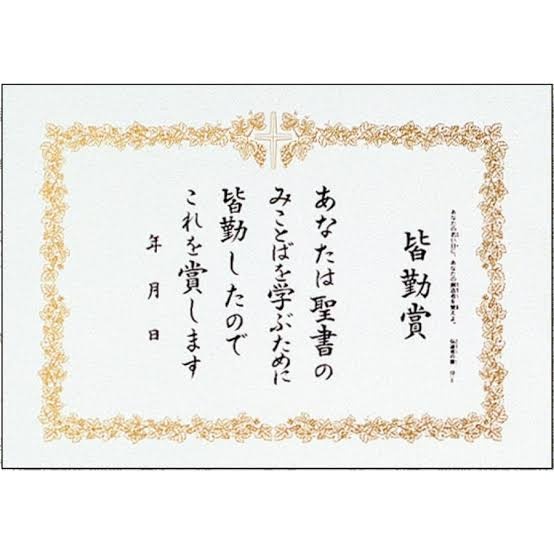 あなたの若い日に、あなたの創造者を覚えよ。
伝道者の書
皆勤賞
あなたは聖書の
みことばを学ぶために
皆勤したので
これを賞します
年 月 日